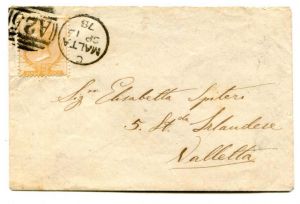 A25
C
MALTA
SP 13
78
Sig.ra Elisabetta Spiteri
5. St.da Irlandese
Valletta